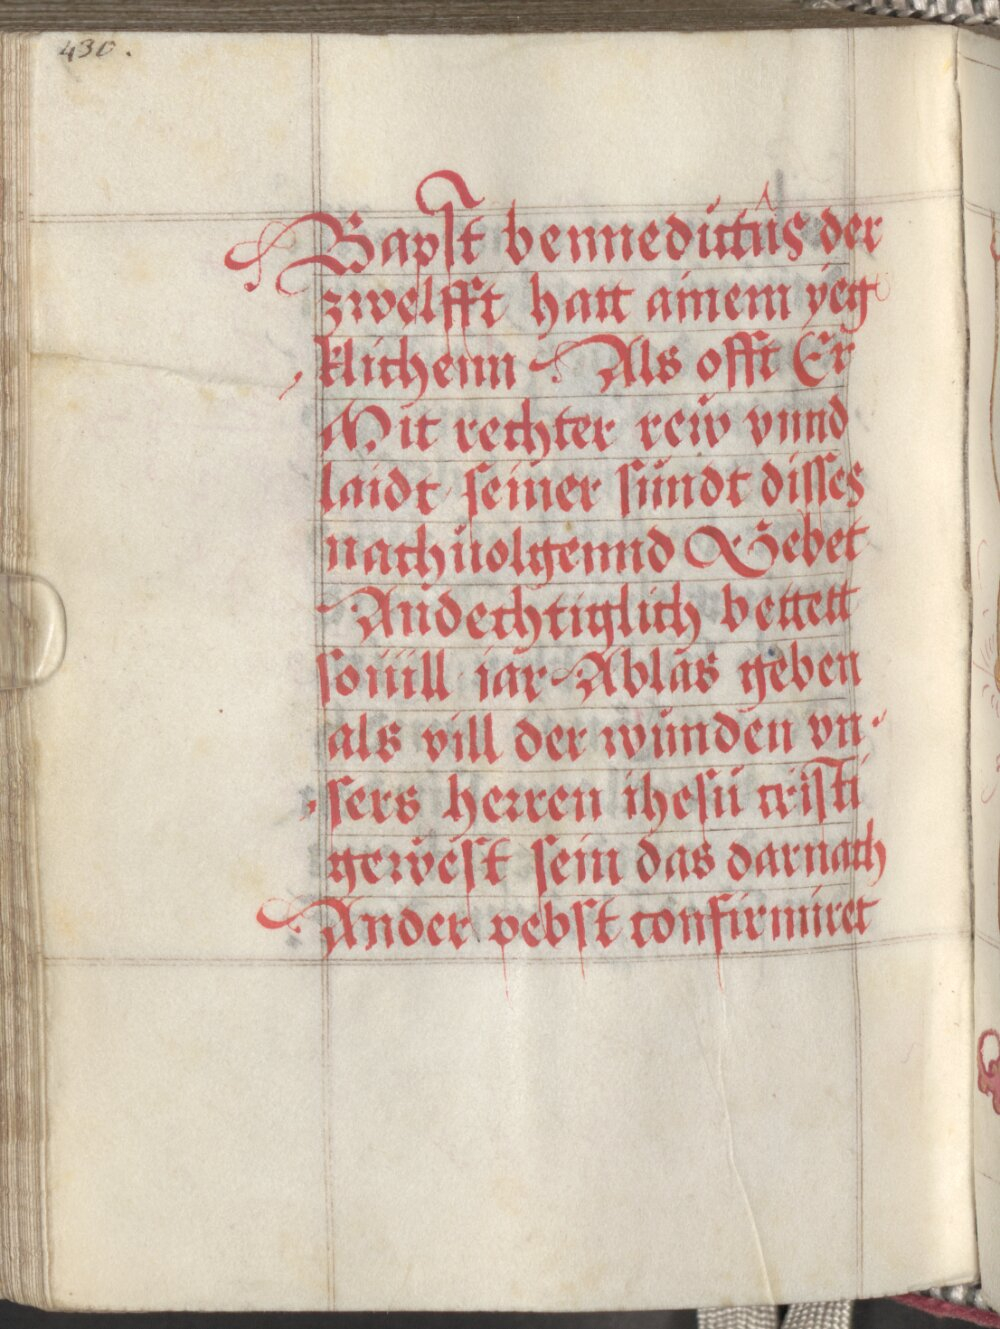 430.
Bapst bennedictus der
zwelfft hatt ainem yeg
klichenn Als offt Er
Mit rechter reiw vnnd
laidt seiner sündt disses
nachuolgennd Gebet
Andechtiglich bettett
souill iar Ablas geben
als vill der wunden vn-
sers herren ihesu cristi
gewest sein das darnach
Ander pebst confirmiret